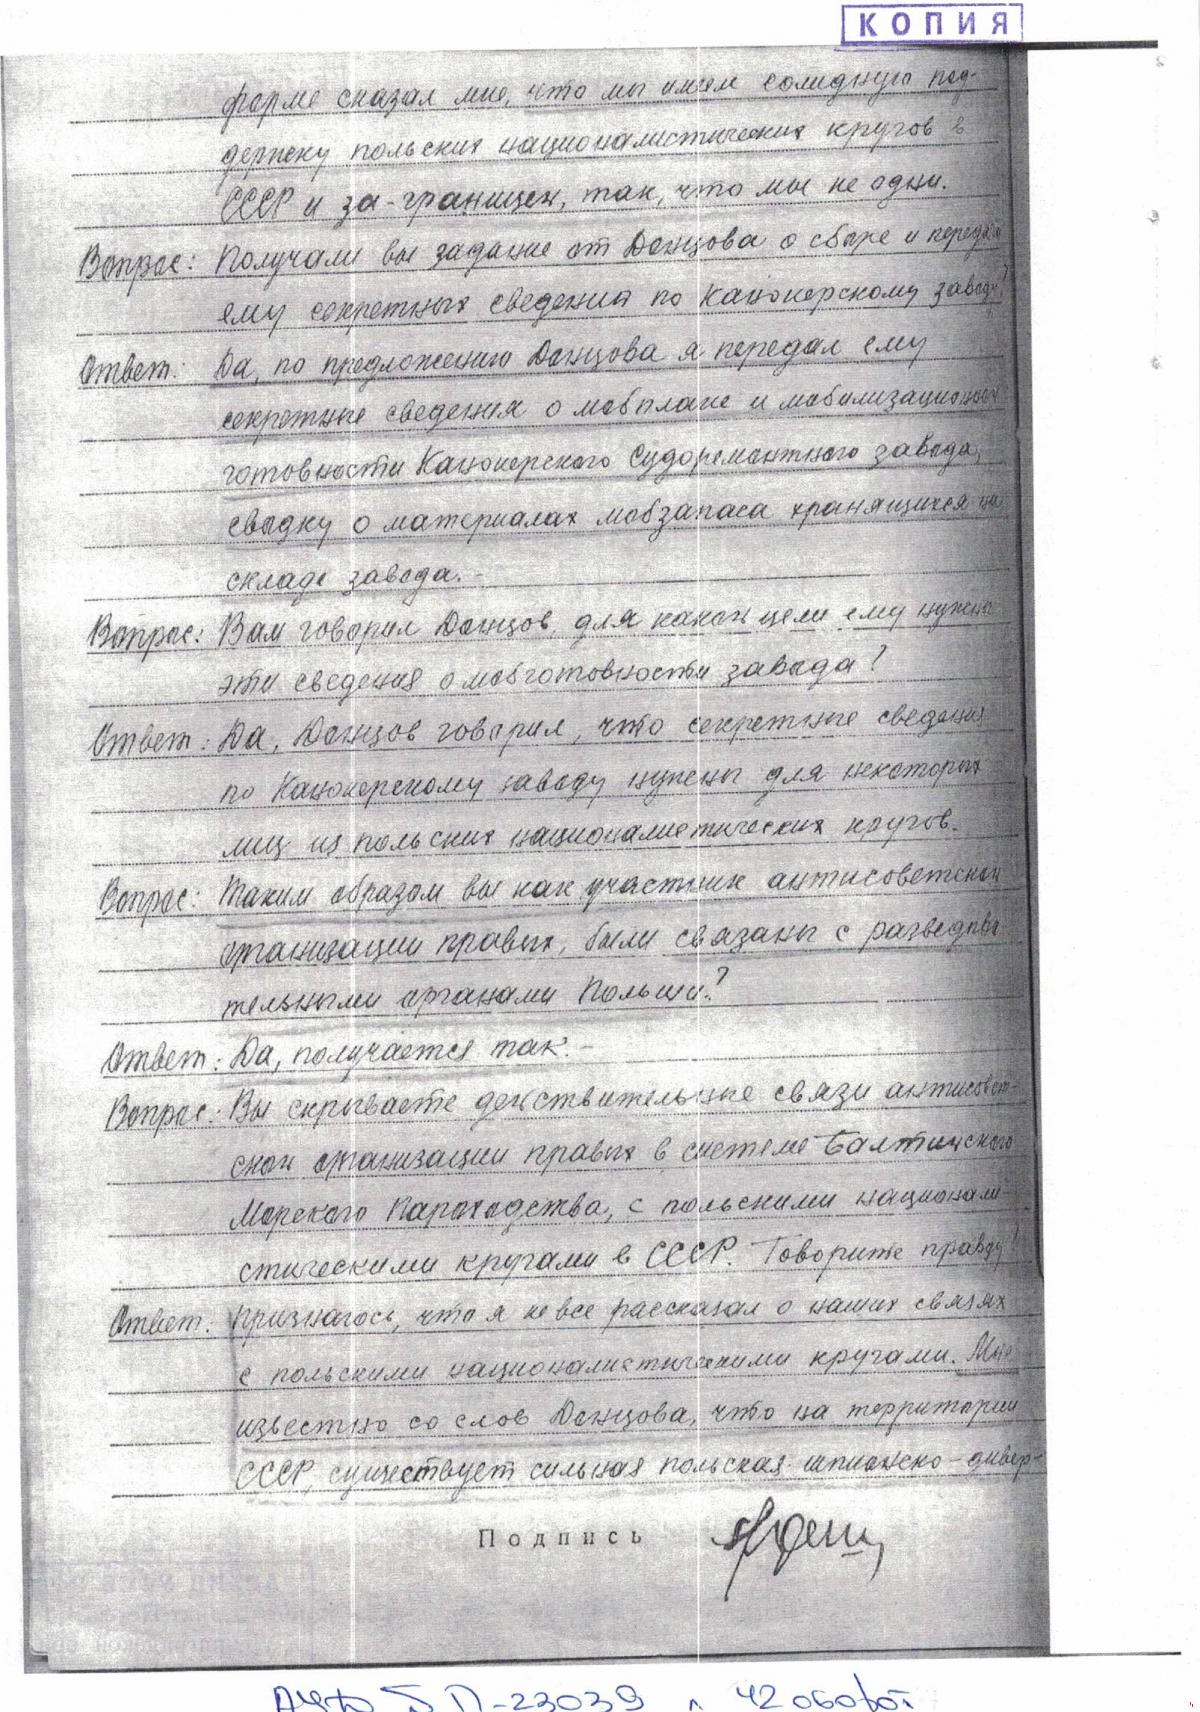 КОПИЯ
форме сказал мне, что мы имеем солидную под-
держку польских националистических кругов в
СССР и за-границей, так, что мы не одни.
Вопрос: Получали вы задание от Донцова о сборе и передаче
ему секретных сведений по Канонерскому заводу?
Ответ: Да, по предложению Донцова я передал ему
секретные сведения о мобплане и мобилизационной
готовности Канонерского Судоремонтного завода,
сводку о материалах мобзапаса хранящихся на
складе завода.-
Вопрос: Вам говорил Донцов, для какой цели ему нужны
эти сведения о мобготовности завода?
Ответ: Да, Донцов говорил, что секретные сведения
по Канонерскому заводу нужны для некоторых
лиц из польских националистических кругов.
Вопрос: Таким образом вы как участник антисоветской
организации правых, были связаны с разведыва
тельными органами Польши?
Ответ: Да, получается так.-
Вопрос: Вы скрываете действительные связи антисовет-
ской организации правых в системе Балтийского
Морского Пароходства, с польскими национали-
стическими кругами в СССР. Говорите правду!
Ответ: Признаюсь, что я не все рассказал о наших связях
с польскими националистическими кругами. Мне
известно со слов Донцова, что на территории
СССР, существует сильная польская шпионско-дивер-
Подпись
П-23039 л 42 оборот